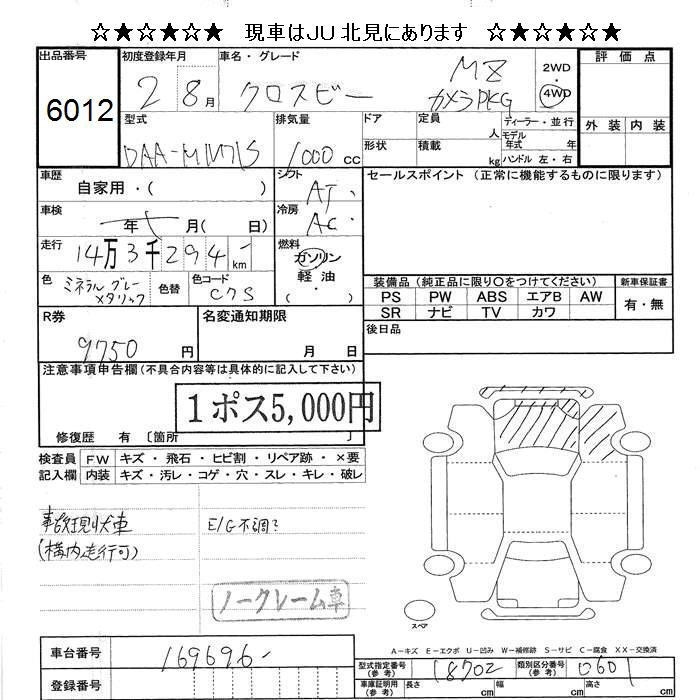 ☆★☆★☆★ 現車はJU北見にあります ☆★☆★☆★
出品番号
6012
初度登録年月
2 8月
車名・グレード
クロスビー MZ
カメラPKG
2WD
・
4WD
評価点
外装 内装
型式
DAA-MN71S
排気量
1000 cc
ドア
定員
人
形状
積載
kg
ディーラー・並行
モデル年式 年
ハンドル 左・右
車歴
自家用・( )
シフト
AT
車検
年 月( 日)
冷房
AC
走行
14万3千294km
燃料
ガソリン
軽油
( )
色
ミネラルグレー
メタリック
色替
色コード
C7S
セールスポイント (正常に機能するものに限ります)
装備品(純正品に限り○をつけてください)
PS PW ABS エアB AW
SR ナビ TV カワ
新車保証書
有・無
後日品
R券
9750円
名変通知期限
月 日
注意事項申告欄(不具合内容等は具体的に記入して下さい)
1ポス5,000円
修復歴 有 〔箇所 〕
検査員
記入欄
FW キズ・飛石・ヒビ割・リペア跡・×要
内装 キズ・汚レ・コゲ・穴・スレ・キレ・破レ
事故現状車
(構内走行可)
E/G不調?
ノークレーム車
スペア
A−キズ E−エクボ U−凹み W−補修跡 S−サビ C−腐食 XX−交換済
車台番号
169696
登録番号
型式指定番号
(参考)
18702
類別区分番号
(参考)
0601
車庫証明用
(参考)
長さ cm
幅 cm
高さ cm